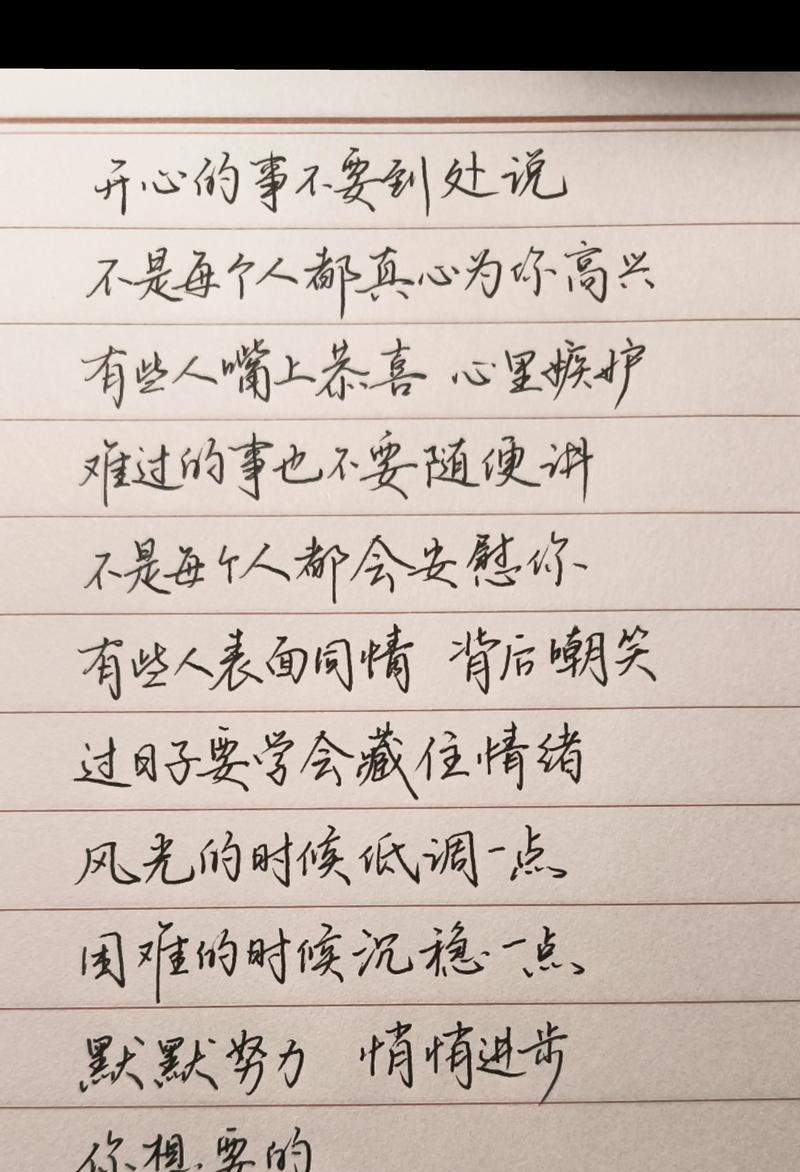 开心的事不要到处说
不是每个人都真心为你高兴
有些人嘴上恭喜 心里嫉妒
难过的事也不要随便讲
不是每个人都会安慰你
有些人表面同情 背后嘲笑
过日子要学会藏住情绪
风光的时候低调一点
困难的时候沉稳一点
默默努力 悄悄进步
你想要的